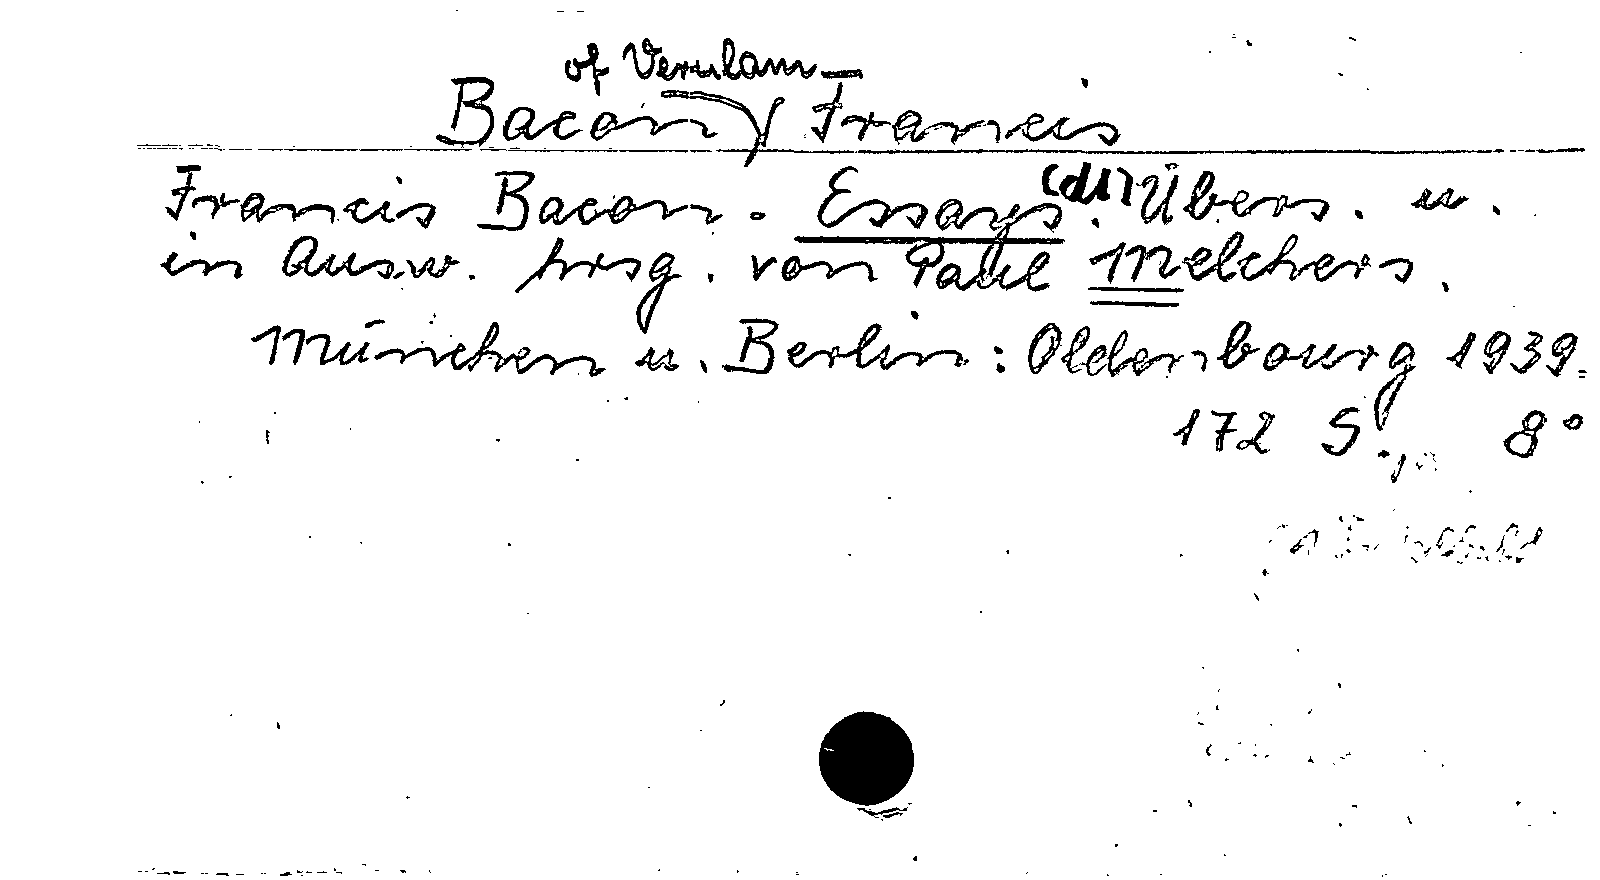 of Verulam
Bacon, Francis
Francis Bacon. Essays (dt.) Übers. u.
in Ausw. hrsg. von Paul Melchers.
München u. Berlin: Oldenbourg 1939.
172 S., 8°